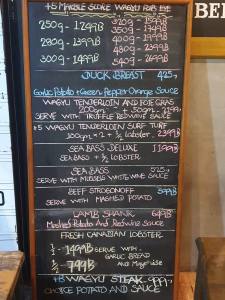 +5 MARBLE SCORE WAGYU RIB EYE
250g - 1299฿ 320g - 1599฿
350g - 1749฿
280g - 1399฿ 400g - 1999฿
480g - 2399฿
300g - 1499฿ 540g - 2699฿
DUCK BREAST 425,-
Garlic Potato + Green Pepper Orange Sauce
WAGYU TENDERLOIN AND FOIE GRAS
200gm + 50gm - 1299฿
SERVE WITH TRUFFLE REDWINE SAUCE
+5 WAGYU TENDERLOIN SURF TURF
300gm × 2 + ½ Lobster - 2399฿
SEA BASS DELUXE 1199฿
SEABASS + ½ LOBSTER
SEA BASS 525,-
SERVE WITH MUSSELS WHITE WINE SAUCE
BEEF STROGONOFF 399฿
SERVE WITH MASHED POTATO
LAMB SHANK 649฿
Mashed Potato And Redwine Sauce
FRESH CANADIAN LOBSTER
1 - 1499฿ SERVE WITH -
GARLIC BREAD
½ 799฿ AND Mayonaise
+5 WAGYU STEAK 999,-
CHOICE POTATO AND SAUCE
BE